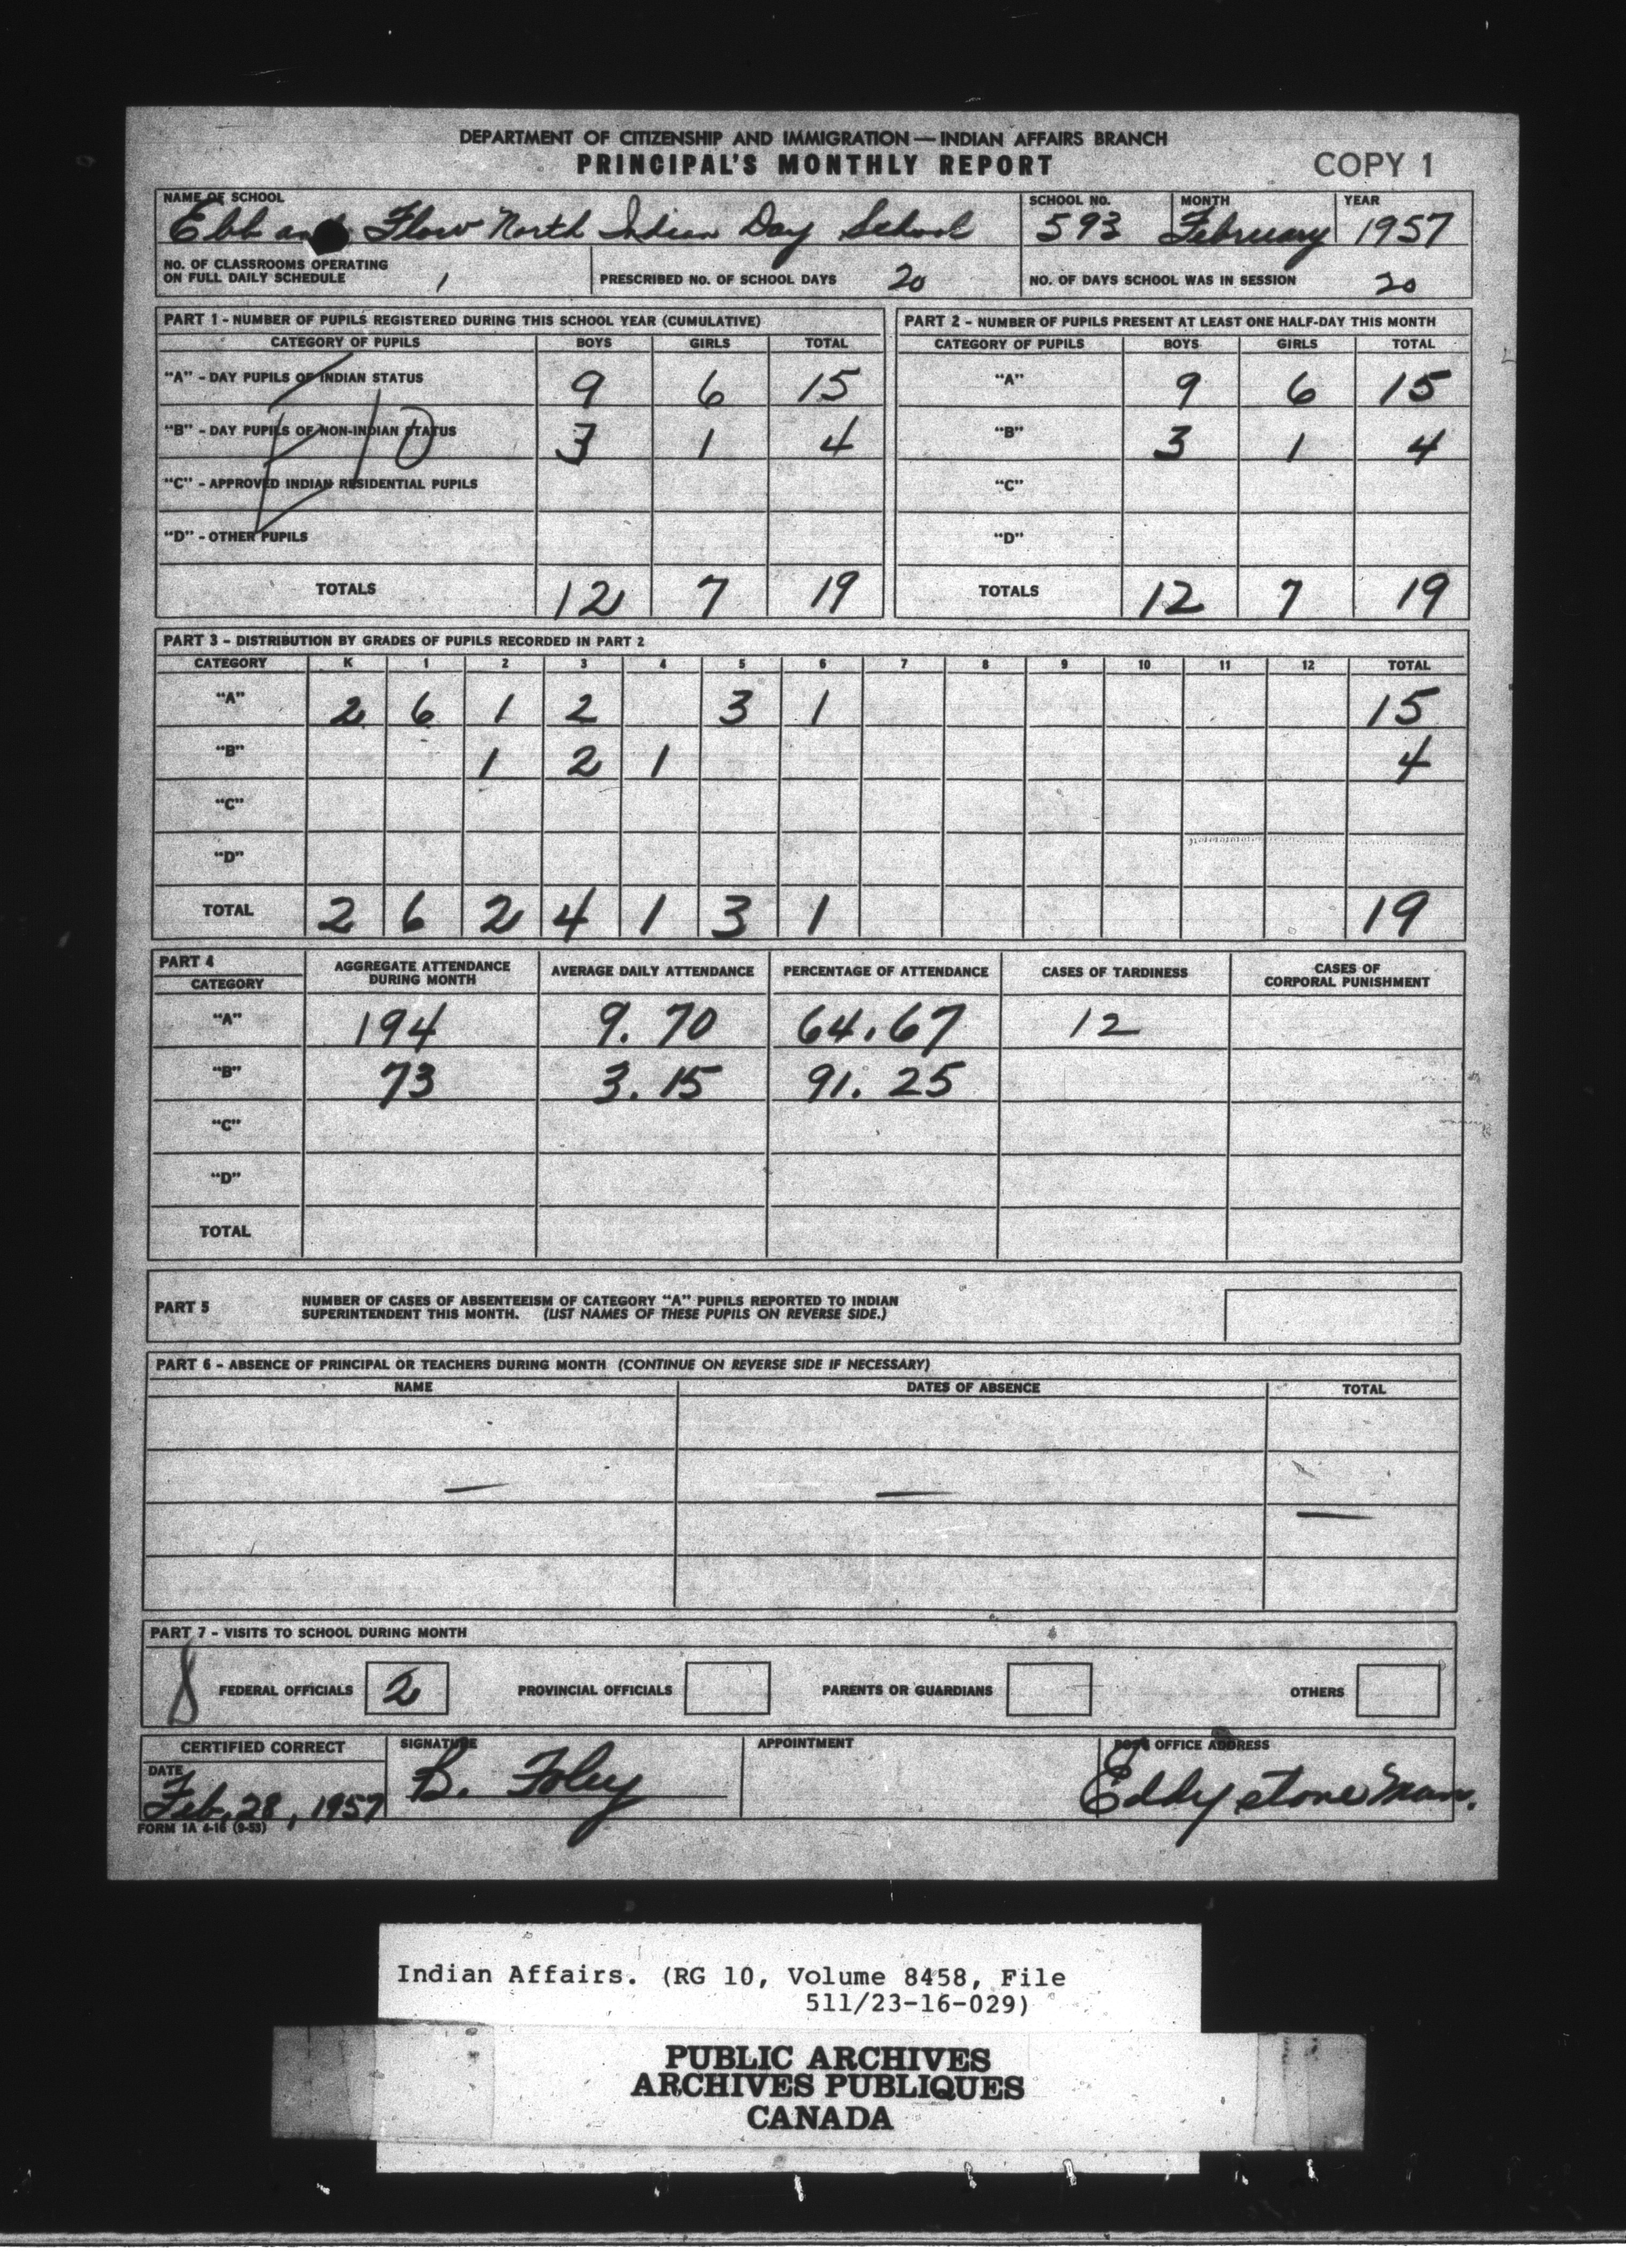 DEPARTMENT OF CITIZENSHIP AND IMMIGRATION — INDIAN AFFAIRS BRANCH
PRINCIPAL'S MONTHLY REPORT COPY 1
NAME OF SCHOOL SCHOOL NO. MONTH YEAR
Ebb and Flow North Indian Day School 593 February 1957
NO. OF CLASSROOMS OPERATING
ON FULL DAILY SCHEDULE 1 PRESCRIBED NO. OF SCHOOL DAYS 20 NO. OF DAYS SCHOOL WAS IN SESSION 20
PART 1 - NUMBER OF PUPILS REGISTERED DURING THIS SCHOOL YEAR (CUMULATIVE)
CATEGORY OF PUPILS BOYS GIRLS TOTAL
"A" - DAY PUPILS OF INDIAN STATUS 9 6 15
"B" - DAY PUPILS OF NON-INDIAN STATUS 3 1 4
"C" - APPROVED INDIAN RESIDENTIAL PUPILS
"D" - OTHER PUPILS
TOTALS 12 7 19
PART 2 - NUMBER OF PUPILS PRESENT AT LEAST ONE HALF-DAY THIS MONTH
CATEGORY OF PUPILS BOYS GIRLS TOTAL
"A" 9 6 15
"B" 3 1 4
"C"
"D"
TOTALS 12 7 19
PART 3 - DISTRIBUTION BY GRADES OF PUPILS RECORDED IN PART 2
CATEGORY K 1 2 3 4 5 6 7 8 9 10 11 12 TOTAL
"A" 2 6 1 2 3 1 15
"B" 1 2 1 4
"C"
"D"
TOTAL 2 6 2 4 1 3 1 19
PART 4
CATEGORY AGGREGATE ATTENDANCE DURING MONTH AVERAGE DAILY ATTENDANCE PERCENTAGE OF ATTENDANCE CASES OF TARDINESS CASES OF CORPORAL PUNISHMENT
"A" 194 9.70 64.67 12
"B" 73 3.15 91.25
"C"
"D"
TOTAL
PART 5 NUMBER OF CASES OF ABSENTEEISM OF CATEGORY "A" PUPILS REPORTED TO INDIAN
SUPERINTENDENT THIS MONTH. (LIST NAMES OF THESE PUPILS ON REVERSE SIDE.)
PART 6 - ABSENCE OF PRINCIPAL OR TEACHERS DURING MONTH (CONTINUE ON REVERSE SIDE IF NECESSARY)
NAME DATES OF ABSENCE TOTAL
— — —
PART 7 - VISITS TO SCHOOL DURING MONTH
8 FEDERAL OFFICIALS 2 PROVINCIAL OFFICIALS PARENTS OR GUARDIANS OTHERS
CERTIFIED CORRECT SIGNATURE APPOINTMENT POST OFFICE ADDRESS
DATE
Feb. 28, 1957 B. Foley Eddystone Man.
FORM 1A 4-16 (9-53)
Indian Affairs. (RG 10, Volume 8458, File
511/23-16-029)
PUBLIC ARCHIVES
ARCHIVES PUBLIQUES
CANADA